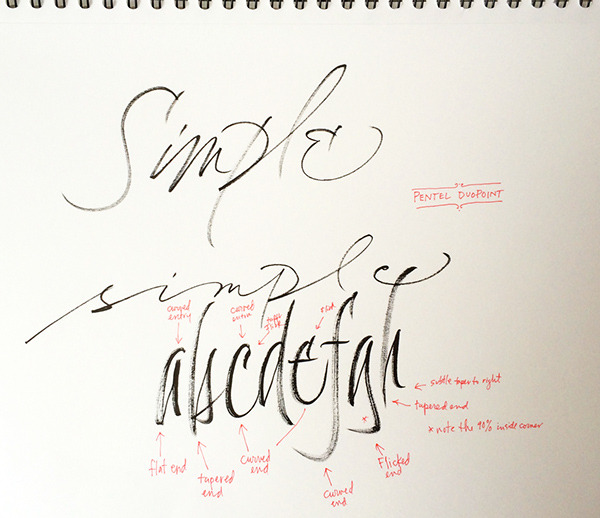 Simple
PENTEL DUOPOINT
simple
curved
entry
curved
abcdefgh
subtle taper to right
tapered end
* note the 90% inside corner
flat end
tapered
end
curved
end
curved
end
Flicked
end